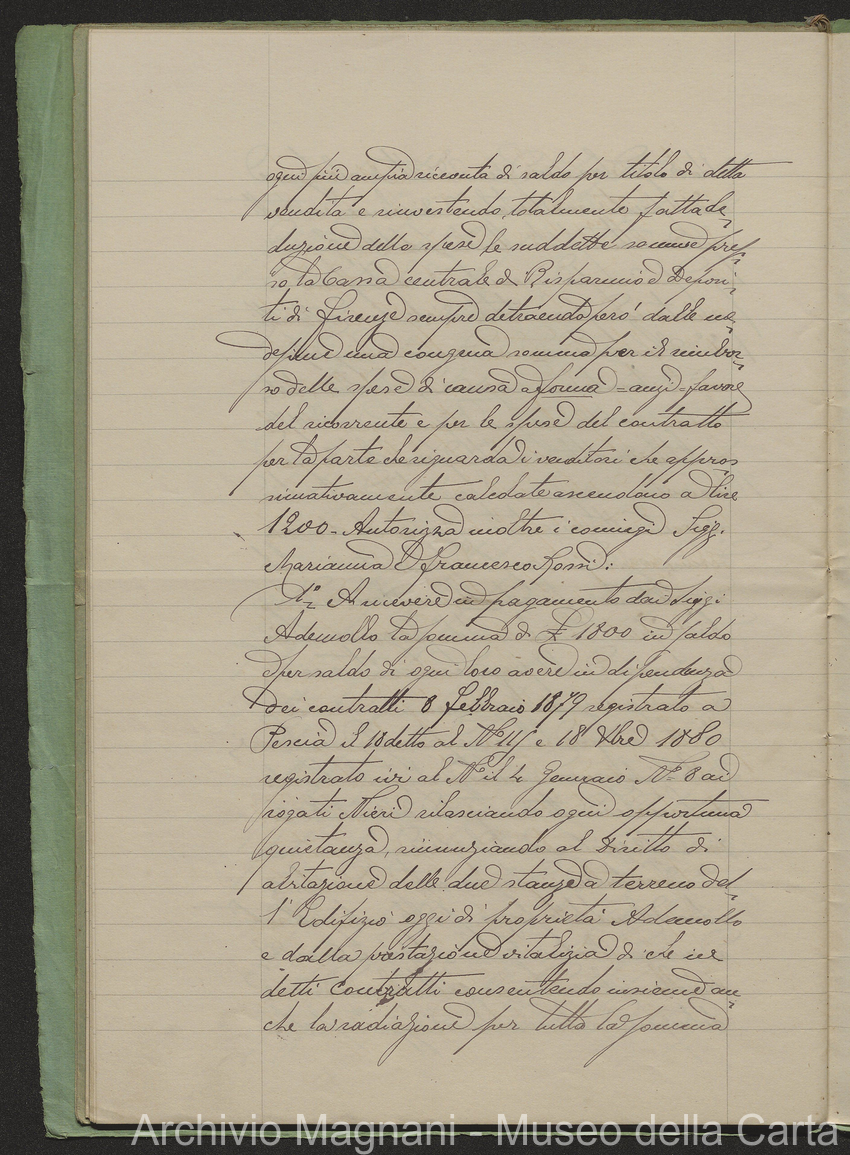 ogni più ampia ricevuta di saldo per titolo di detta
vendita e rinvestendo totalmente fatta de„
duzione delle spese le suddette somme pres„
so la Cassa centrale di Risparmio e Deposi„
ti di Firenze sempre detraendo però dalle me„
desime una congrua somma per il rimbor„
so delle spese di causa a forma = anzi = favore
del ricorrente e per le spese del contratto
per la parte che riguarda i venditori che appros
simativamente calcolate ascendono a lire
1200 - Autorizza inoltre i coniugi Sigg.
Marianna e Francesco Rossi:
1º A ricevere in pagamento dai Sigg.i
Ademollo la somma di £ 1800 in saldo
e per saldo di ogni loro avere in dipendenza
dei contratti 8 Febbraio 1879 registrato a
Pescia il 10 detto al Nº 115 e 18 Xbre 1880
registrato ivi al Nº il 4 Gennaio Nº 8 ai
rogati Nieri rilasciando ogni opportuna
quietanza, rinunziando al Diritto di
abitazione delle due stanze a terreno del„
l' Edifizio oggi di proprietà Ademollo
e dalla prestazione vitalizia di che nei
detti contratti consentendo insieme an„
che la radiazione per tutta la somma
Archivio Magnani - Museo della Carta